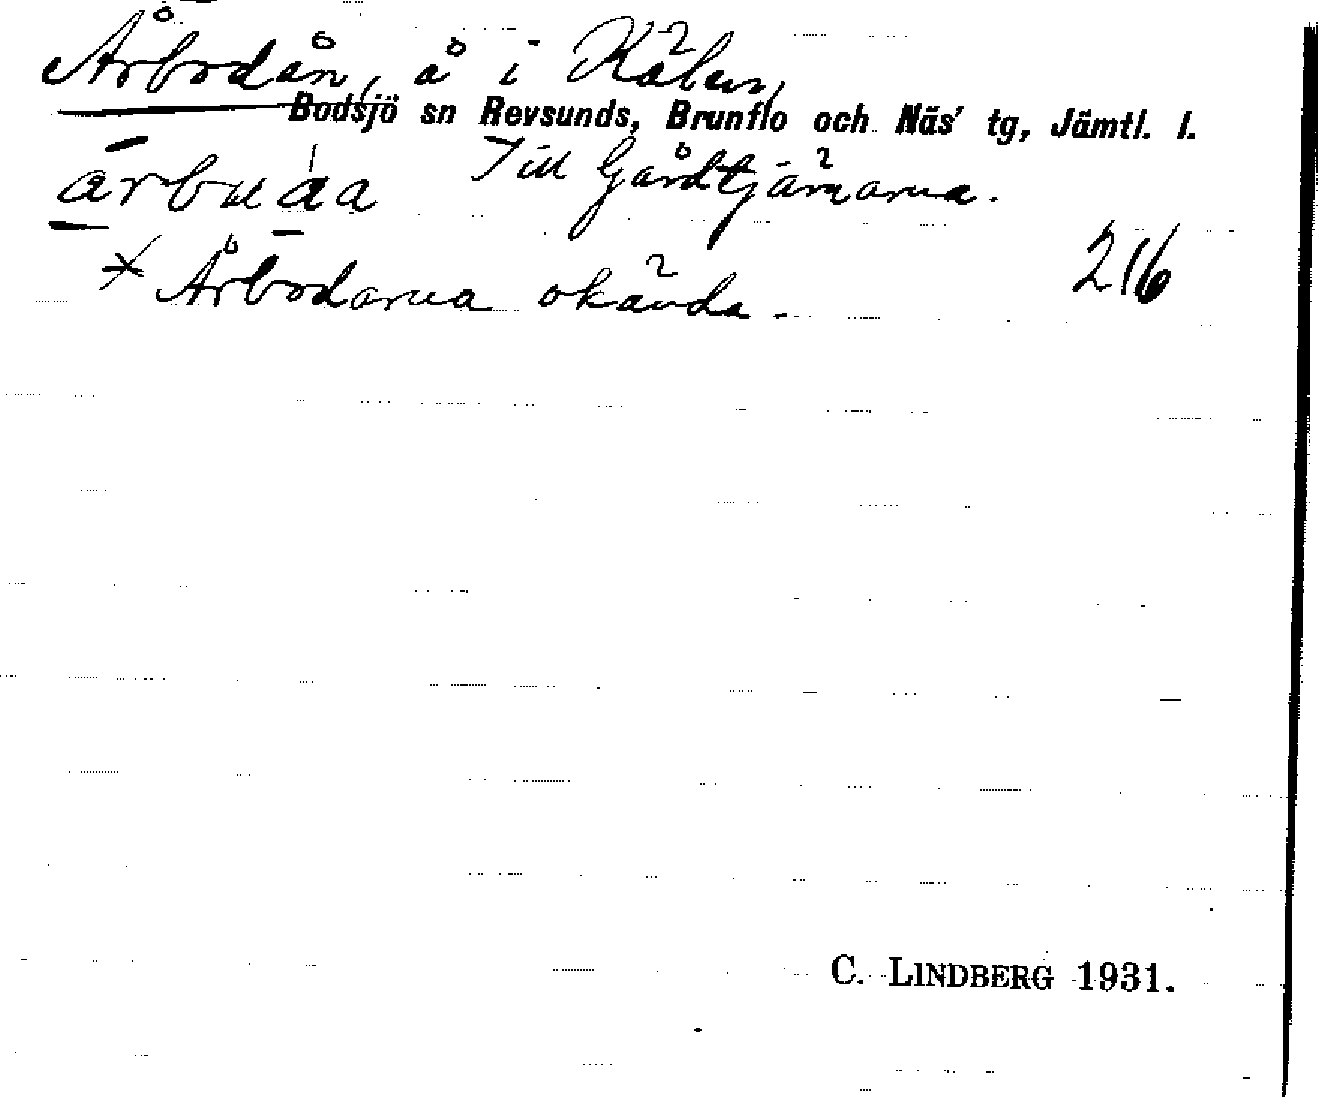 Årbodån, å i Kälen,
Bodsjö sn Revsunds, Brunflo och Näs' tg, Jämtl. l.
Till Gårdtjärnarna.
* Årbodarna okända.
216
C. LINDBERG 1931.